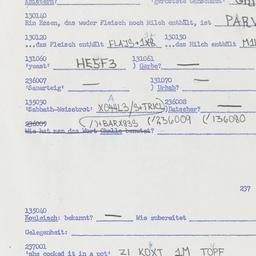 131040
Ein Essen, das weder Fleisch noch Milch enthält, ist PARV
130120 130130
...das Fleisch enthält FLAJS+IKB ...das Milch enthält MI
131060 131061
'yeast' HE5F3 ) Gerbe? —
236007 131070
'Sauerteig' — ) Urhab? —
135030 236008
'Sabbath-Weissbrot' XO44L3/S+TRICL ) Datscher? —
236009 (1XBARX833 ('236009 ('136080
Wie hat man das Wort Challe benutzt?
237
135040
Kouletsch: bekannt? — Wie zubereitet
Gelegenheit:
237001
'she cooked it in a pot' ZI KOXT 1M TOPF